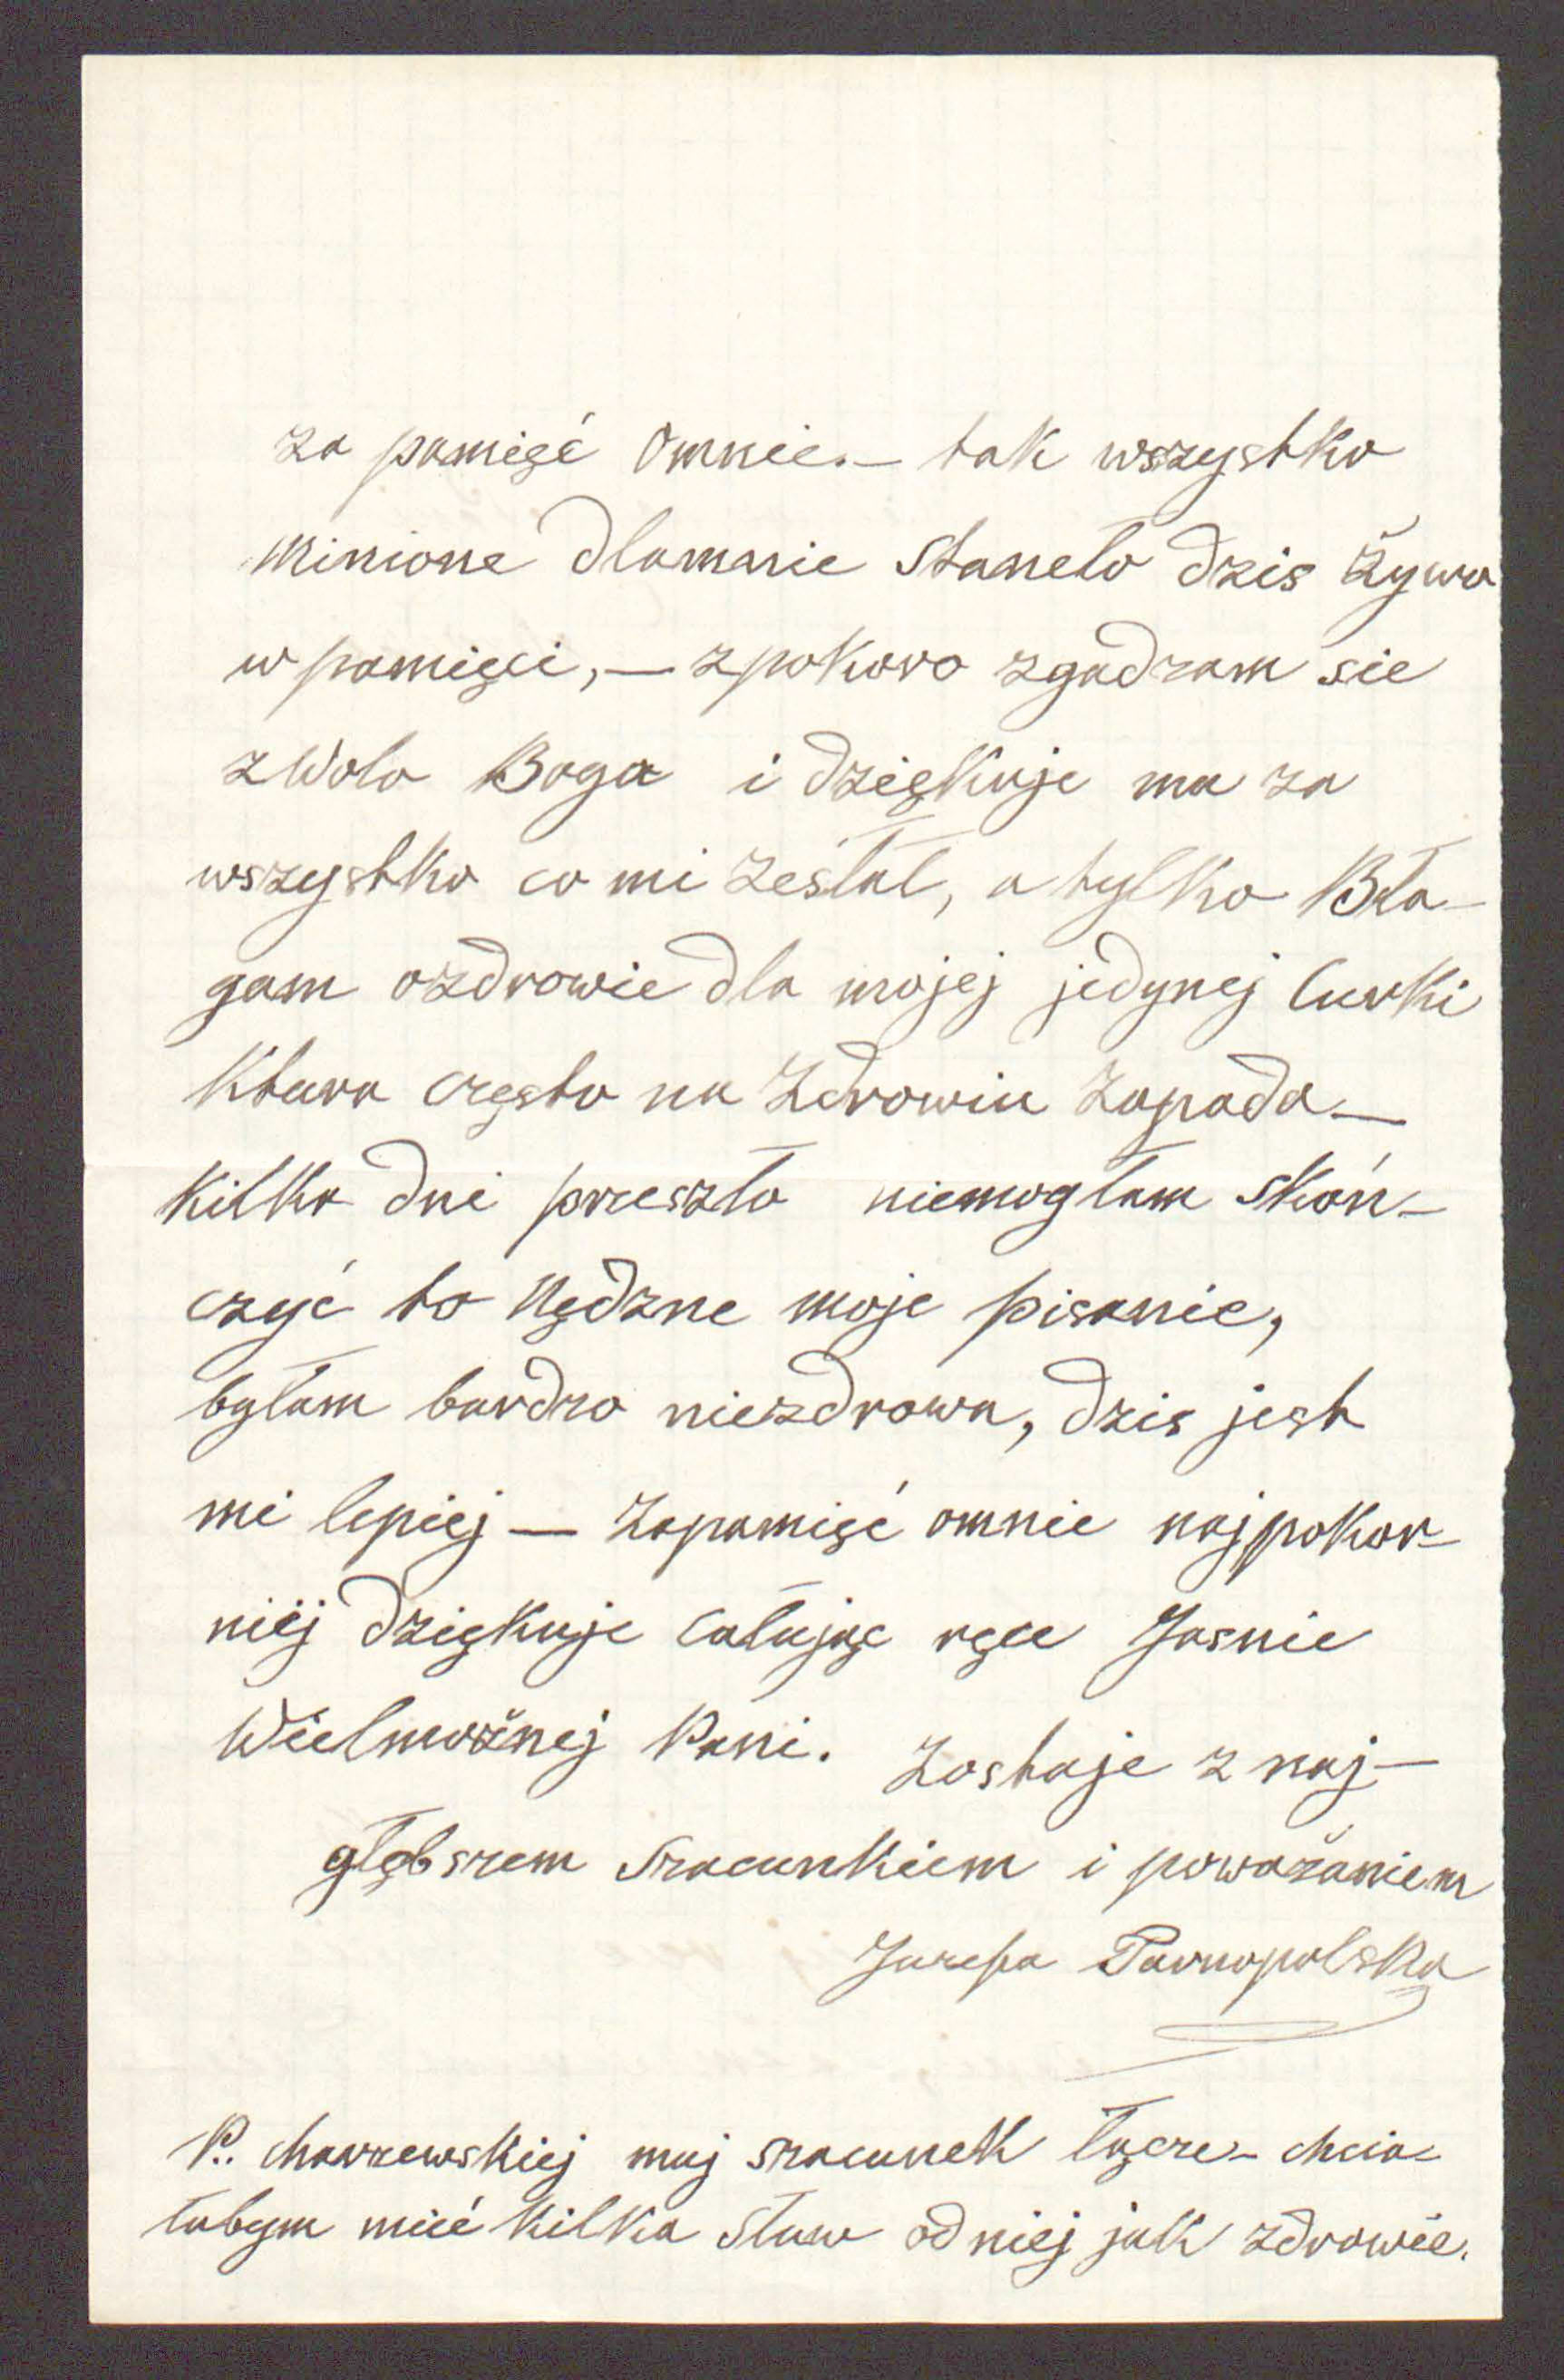 za pamięć omnie. — tak wszystko
minione dlamnie staneło dzis żywo
w pamięci, — zpokoro zgadzam sie
z Wolo Boga i dziękuje mu za
wszystko co mi zesłał, a tylko Bła-
gam ozdrowie dla mojej jedynej Curki
Ktura często na Zdrowiu Zapada —
Kilka dni przeszło niemogłam skoń-
czyć to Nędzne moje pisanie,
byłam bardzo niezdrowa, dzis jest
mi lepiej — Zapamięć omnie najpokor-
niéj dziękuje całując ręce Jasnie
Wielmożnej Pani. Zostaje z naj-
głębszem Szacunkiem i poważaniem
Juzefa Tarnopolska
P. Charzewskiej muj szacunek łącze - chcia-
łabym mieć kilka słuw od niej jak zdrowie.